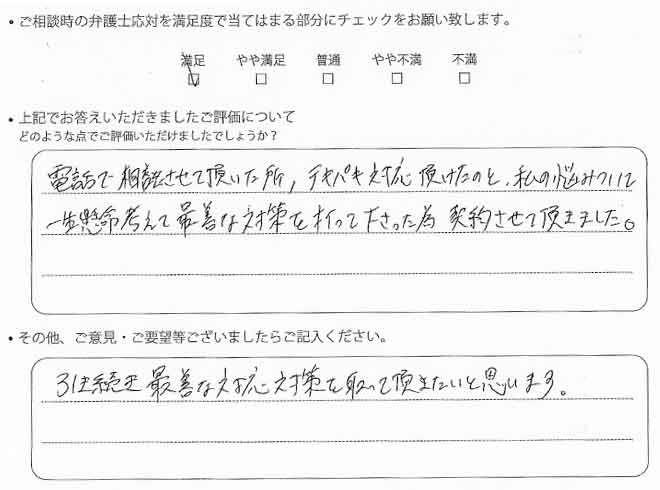 ・ご相談時の弁護士応対を満足度で当てはまる部分にチェックをお願い致します。
満足 やや満足 普通 やや不満 不満
・上記でお答えいただきましたご評価について
どのような点でご評価いただけましたでしょうか？
電話で相談させて頂いた所，テキパキ対応頂けたのと、私の悩みついて
一生懸命考えて最善な対策を打って下さった為 契約させて頂きました。
・その他、ご意見・ご要望等ございましたらご記入ください。
引き続き最善な対応対策を取って頂きたいと思います。